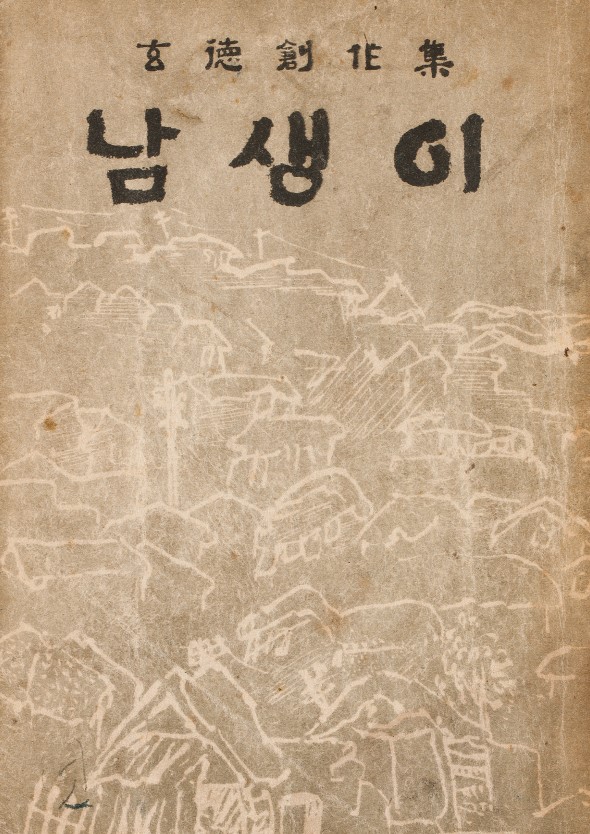 玄德創作集
남생이